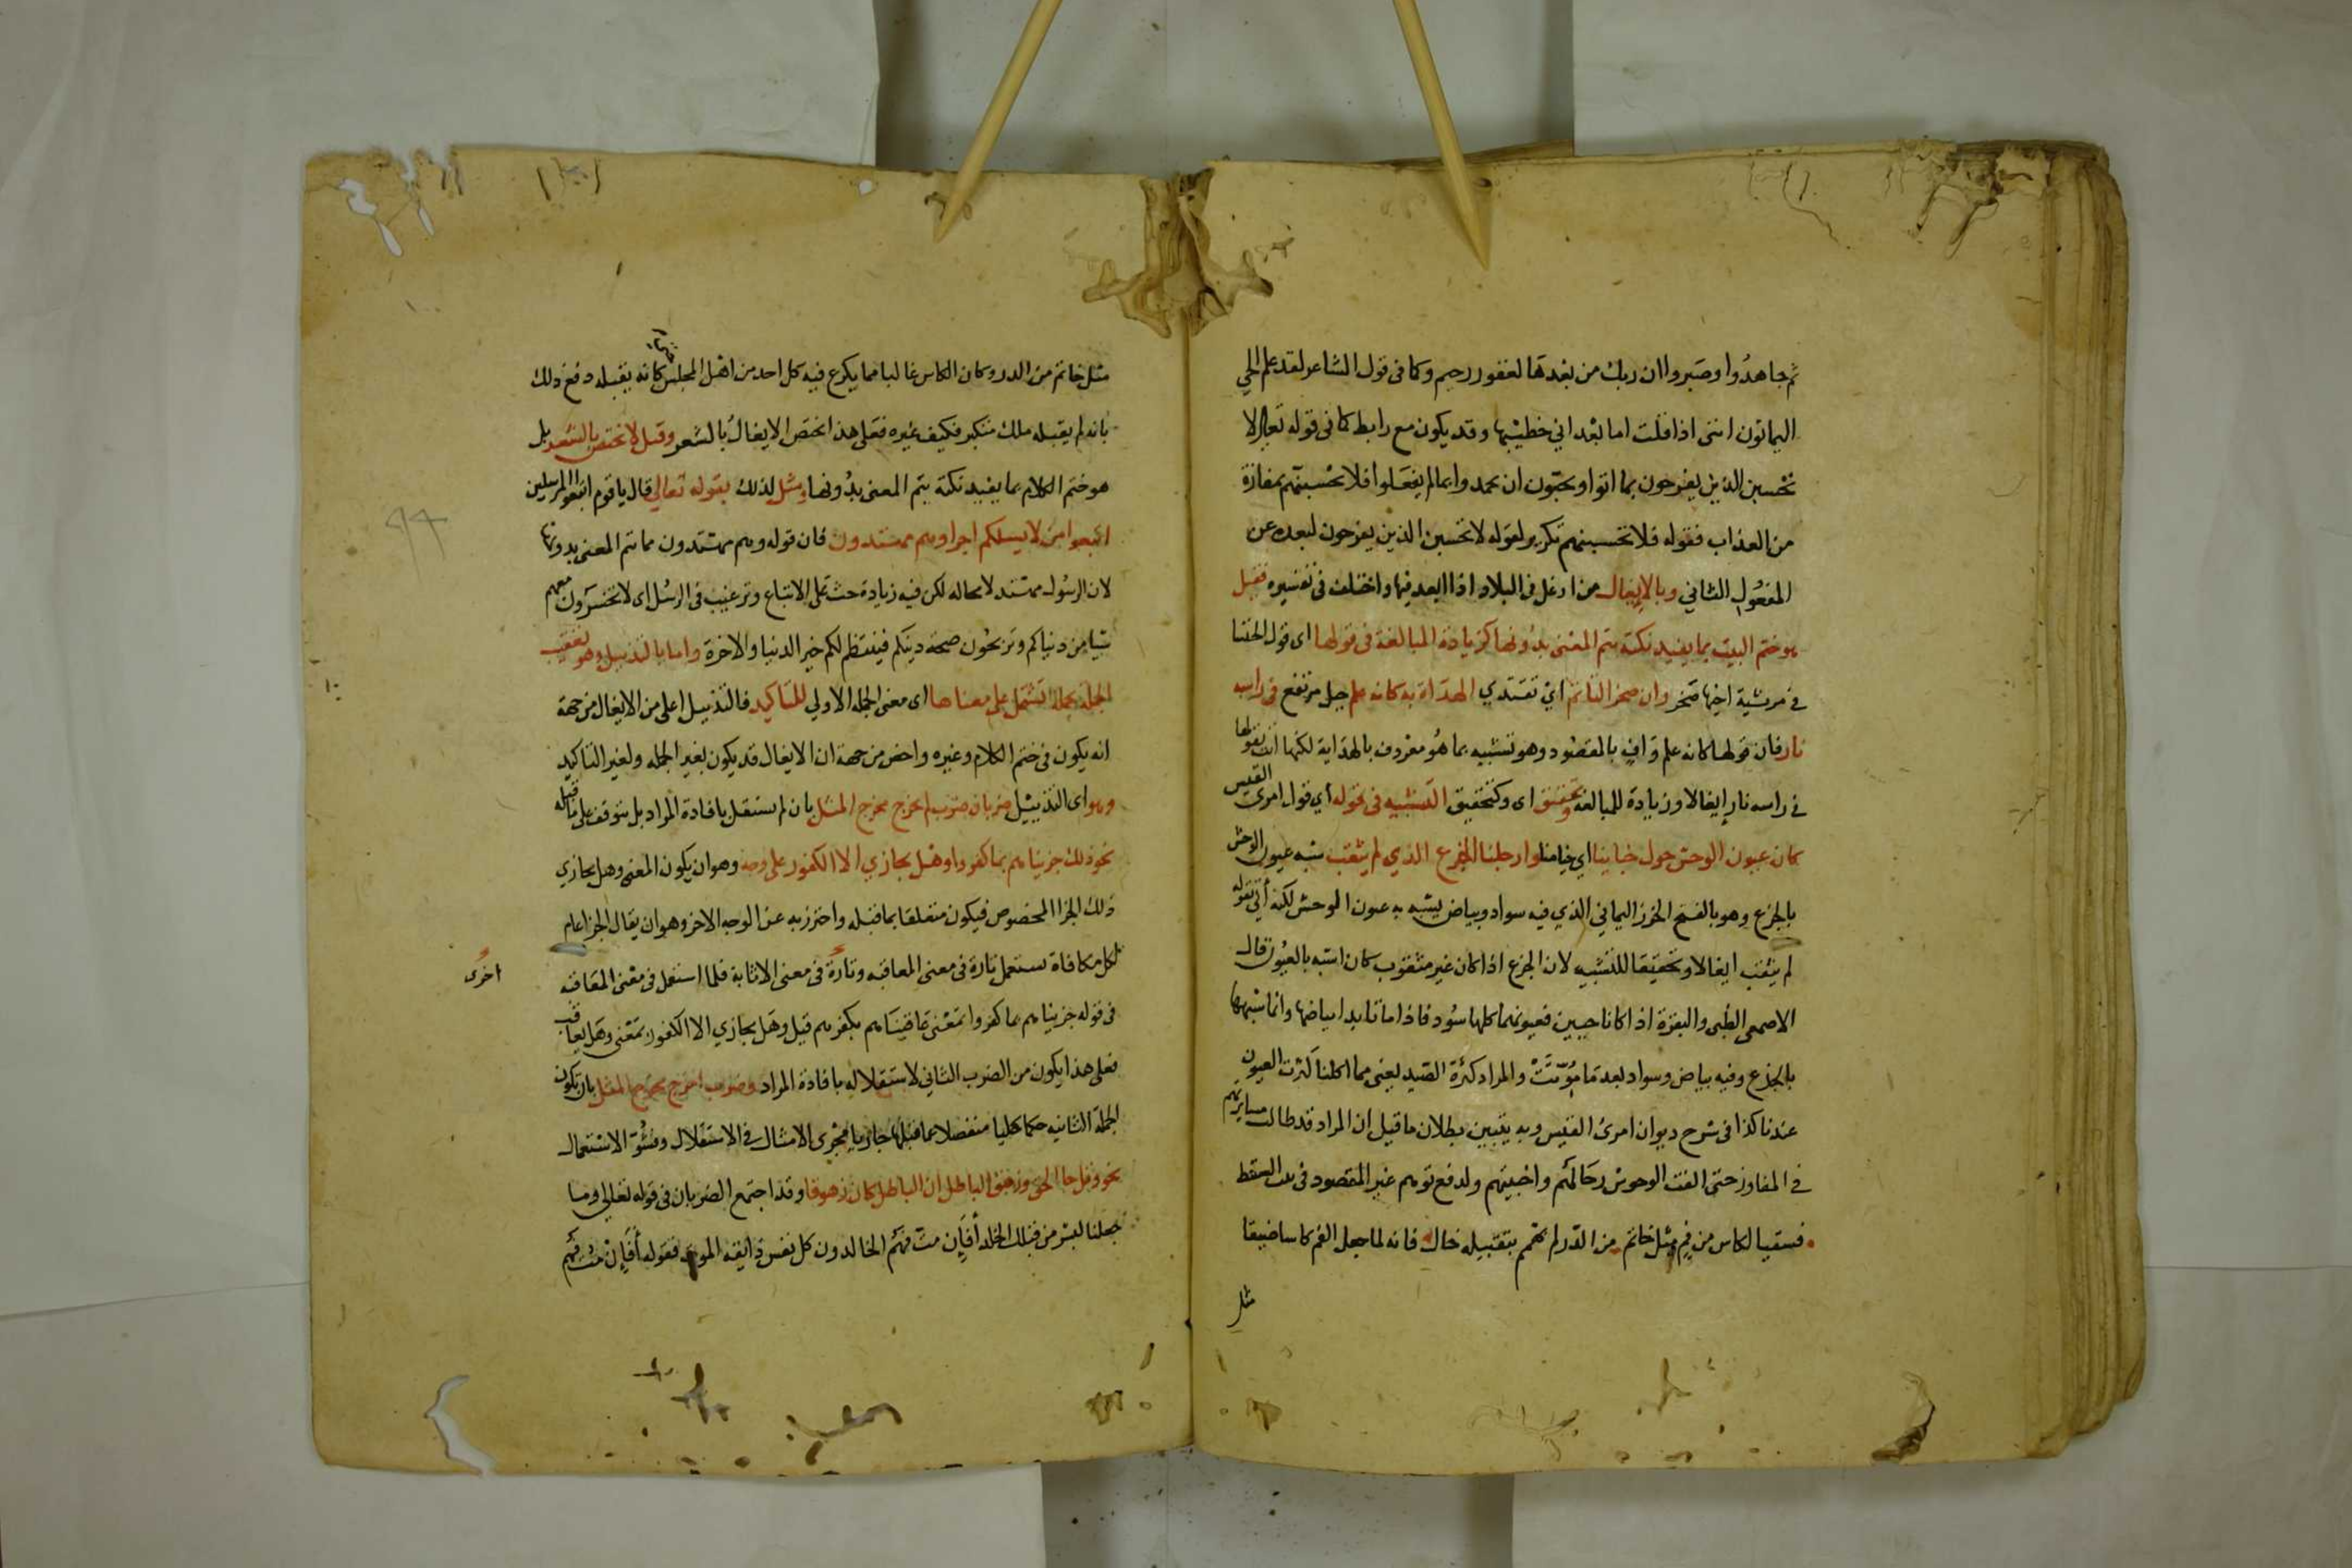 ثم جاهدُوا وصَبروا ان ربك من بعدها لغفور رحيم وكما فى قول الشاعر لقد علم الحي
اليمانون اننى اذا قلت اما بعْد اني خطيبُها وقد يكون مع رابط كما فى قوله تعالى لا
تحْسبن الذين يفرحون بما اتوا ويحبّون ان يحمدوا بما لم يفعَلوا فلا تحْسبنّهم بمفازة
من العذاب فقوله فلا تحسبنهم تكرير لقوله لا تحسبن الذين يفرحون لبعده عن
المفعُول الثاني وبالايغال من اوغل فى البلاد اذا ابعد فيها واختلف فى تفسيره فقيل
هو ختم البيت بما يفيد نكتة يتم المعْنى بدُونها كزيادة المبالغة فى قولها اى قول الخنسا
فى مرثية اخيها صَخر وان صخرا لتاتم اي تقتدي الهداة به كانه علم جبل مرتفع فى راسه
نار فان قولها كانه علم وَافٍ بالمقصُود وهو تشبيه بما هُو معرُوف بالهدَاية لكنها اتت بقولها
فى راسه نار ايغالا وزيادة للمبالغة وتحقيق اى وكتحقيق التشبيه فى قوله اي قول امرى القيس
كان عيون الوحش حول خباينا اي خيامنا وارحلنا الجزع الذي لم يثقب شبه عيون الوحش
بالجزع وهو بالفتح الخرز اليماني الذي فيه سواد وبياض يشبه به عيون الوحش لكنه أتى بقوله
لم يثقب ايغالا وتحقيقا للتشبيه لان الجزع اذا كان غير مثقوب كان اشبه بالعيُون قال
الاصمعى الظبى والبقرة اذا كانا حيين فعيونهما كلها سُود فاذا ماتا بدا بياضها وانما شبهها
بالجزع وفيه بياض وسواد بعد مَا مُوّتتْ والمراد كثرة الصّيد يعنى مما اكلنا كثرت العيون
عندنا كذا فى شرح ديوان امرئ القيس وبه يتبين بطلان ما قيل ان المراد قد طالت مسايرتهم
فى المفاوز حتى الفت الوحوش رحَالهُم واخبيتهم ولدفع توهم غير المقصود فى بيت السقط
فسقيا لكاس من فم مثل خاتم من الدّر لم يهمم بتقبيله خال فانه لما جعل الفم كاسا ضيقا
مثل
مثل خاتم من الدر وكان الكاس غالبا مما يكرع فيه كل احد من اهل المجلس كانه يقبله دفع ذلك
بانه لم يقبله ملك متكبر فكيف غيره فعَلى هذا اختصّ الايغالُ بالشعر وقيل لا يختص بالشعر بل
هو ختم الكلام بما يفيد نكتة يتم المعنى بدُونها ومثل لذلك بقوله تعالى قال يا قوم اتبعوا المرسلين
اتبعوا من لا يسلكم اجرا وهم مهتدون فان قوله وهم مهتدون مما يتم المعنى بدونها
لان الرسُول مهتد لا محاله لكن فيه زيادة حث على الاتباع وترغيب فى الرسُل اى لا تخسَرون معهم
شيا من دنياكم وتربحُون صحة دينكم فينتظم لكم خير الدنيا والاخرة واما بالتذييل وهو تعقيب
الجملة بجملة تشتمل على معناها اى معنى الجملة الاولي للتاكيد فالتذييل اعلى من الايغال من جهة
انه يكون فى ختم الكلام وغيره واخص من جهة ان الايغال قد يكون بغير الجمله ولغير التاكيد
وهو اى التذييل ضربان ضرب لم يخرج مخرج المثل بان لم يستقل بافادة المراد بل يتوقف على ما قبله
نحو ذلك جزيناهم بما كفروا وهل يجازي الا الكفور على وجه وهو ان يكون المعنى وهل يجازي
ذلك الجزا المخصوص فيكون متعلقا بما قبله واحترز به عن الوجه الاخر وهو ان يقال الجزا عام
لكل مكافاة تستعمل تارة فى معنى المعاقبه وتارة فى معنى الاثابة فلما استعمل فى معْنى المعَاقبه
اخرى
فى قوله جزيناهم بما كفروا بمَعْنى عاقبنَاهم بكفرهم قيل وهَل يجازي الا الكفور بمَعْنى وهَل يعاقب
فعلى هذا يكون من الضرب الثاني لاستقلاله بافادة المراد وضرب اخرج مخرج المثل بان تكون
الجملة الثانيه حكما كليا منفصلا عما قبلها جاريا مجْرى الامثال فى الاستقلال وفشُوّ الاسْتعمال
نحو وقل جا الحق وزهق الباطل ان الباطل كان زهوقا وقد اجتمع الضربان فى قوله تعالى وما
جعلنا لبشر من قبلك الخلد أفإن متّ فهُم الخالدون كل نفس ذايقه الموت فقوله أفَإن مت فهُم